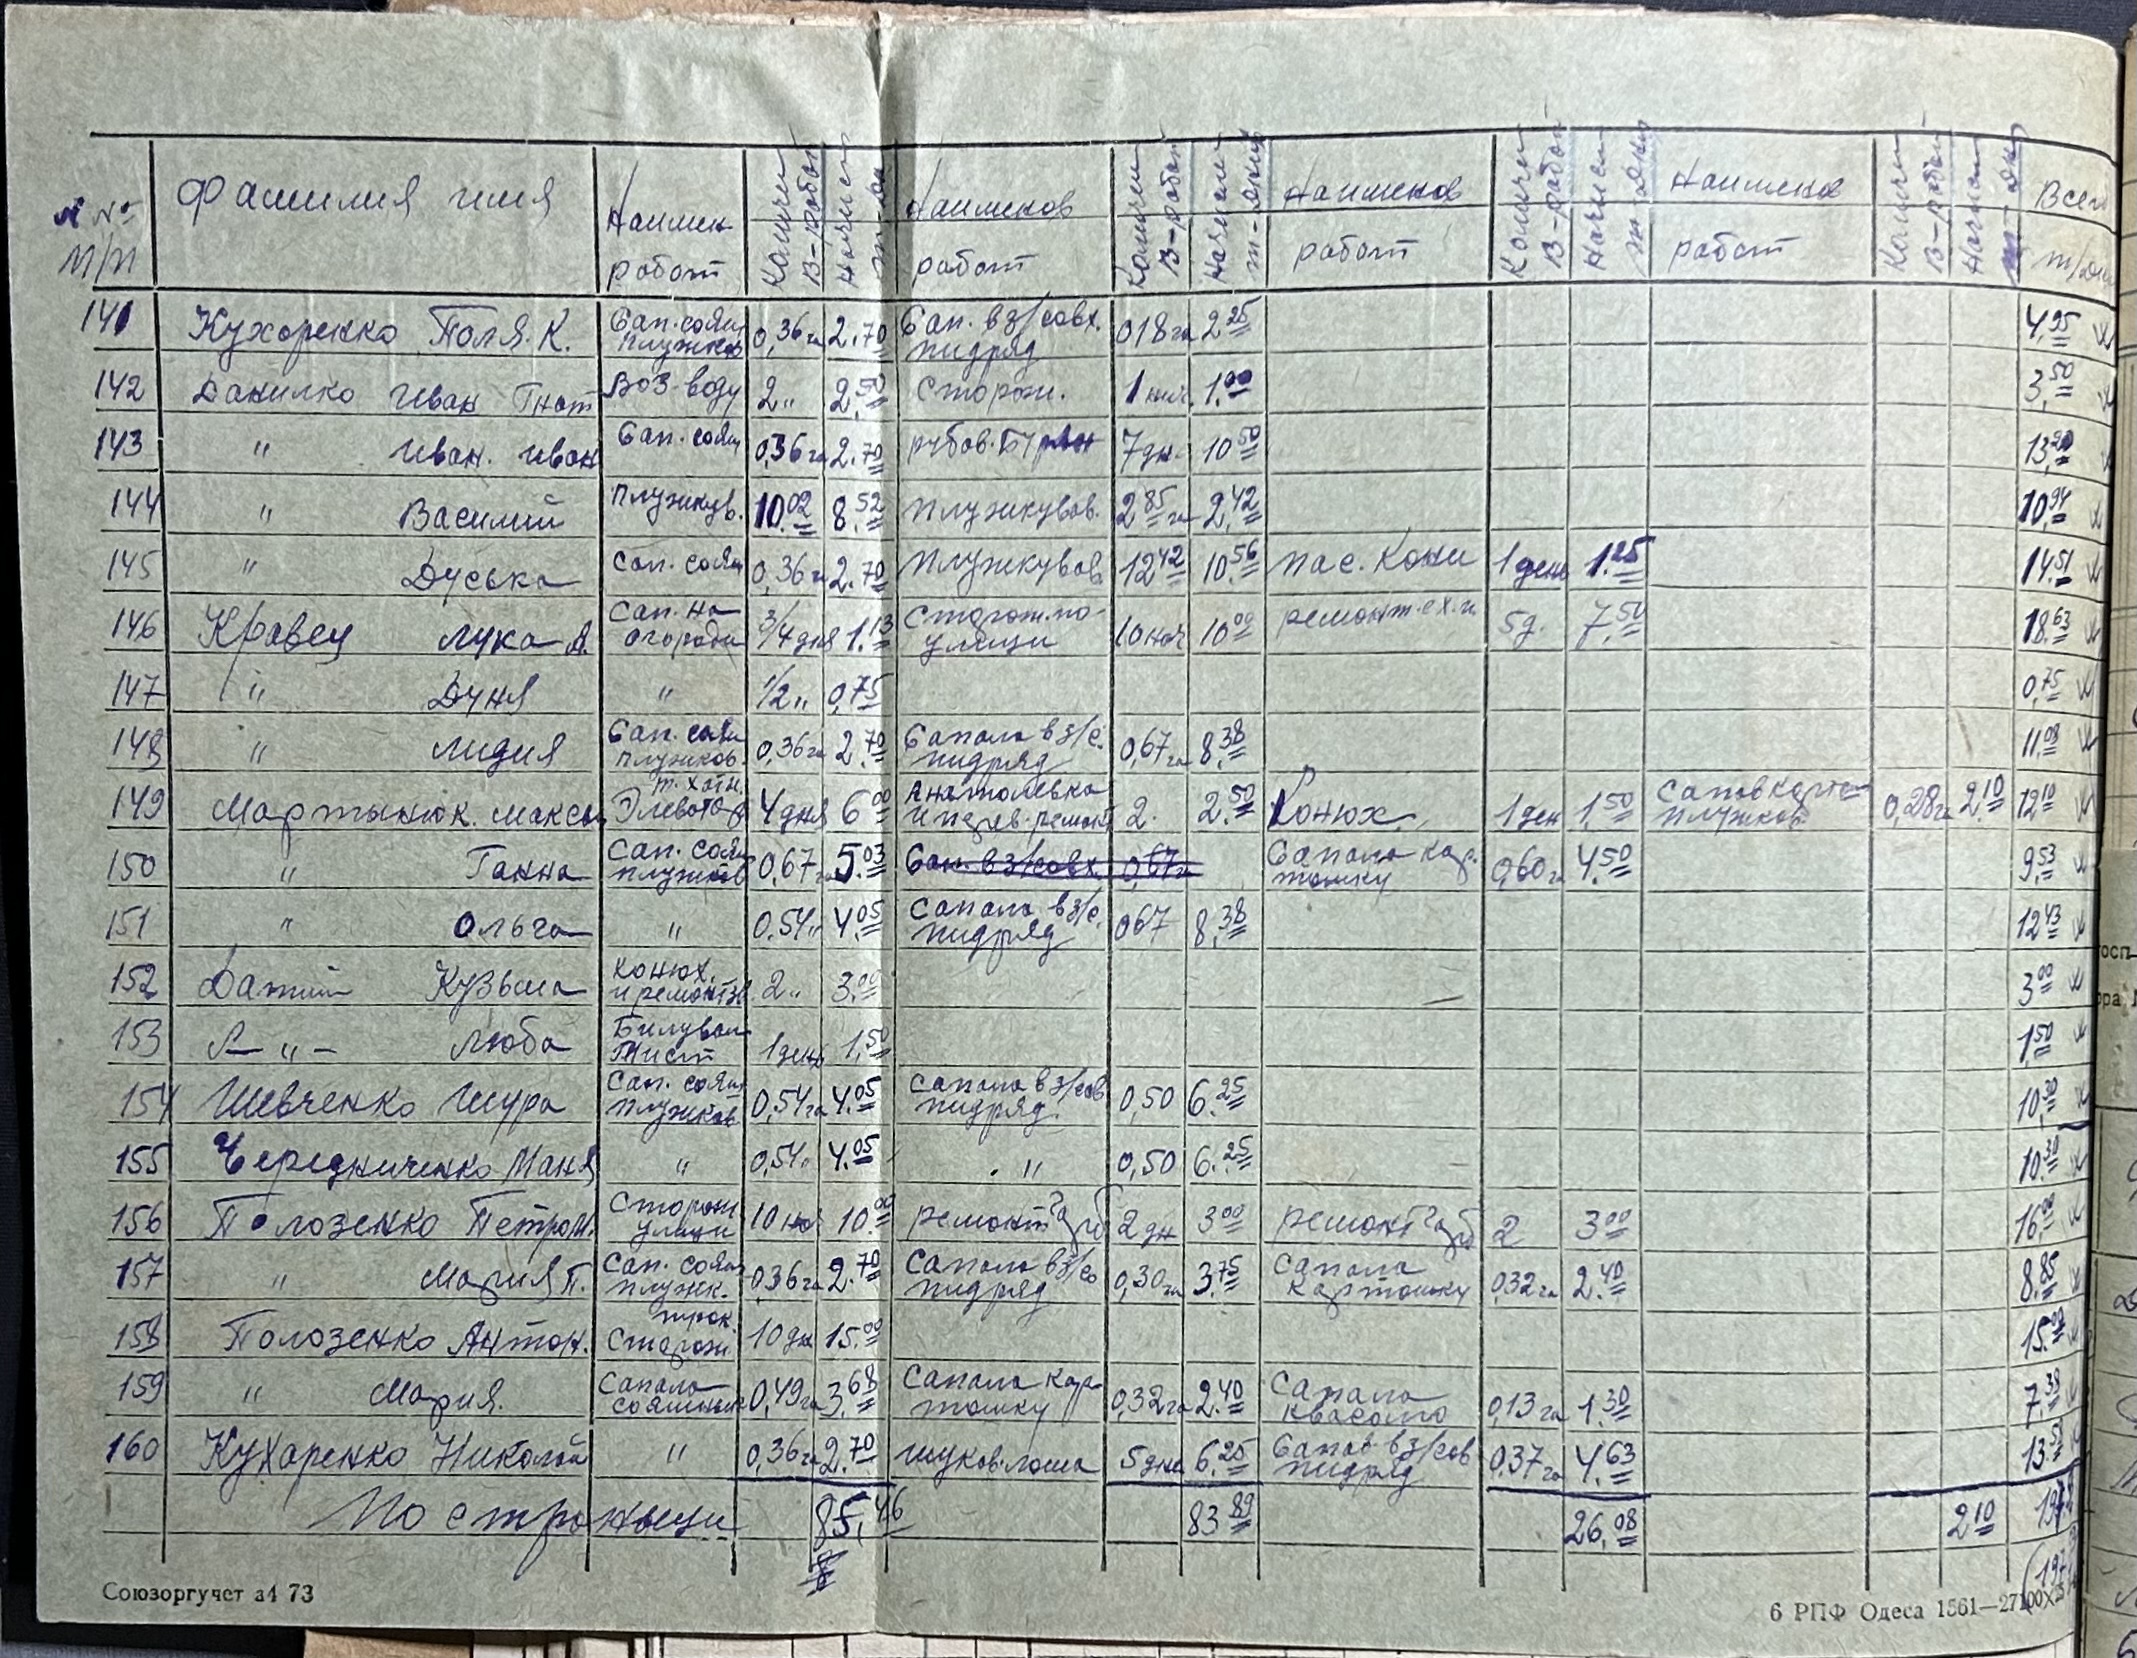 №№ п/п Фамилия имя Наимен работ Количеч в-работ Начисл т-дн Наименов работ Количеч в-работ Начисл т-дни Наименов работ Количеч в-работ Начисл т-дни Наименов работ Количеч в-работ Начисл т-дни Всего т/дни
141 Кухоренко Поля. К. Сап. соян плужков 0,36 га 2.70 Сап. в з/совх. пидряд 0,18 га 2.25 4,95
142 Данилко Иван Гнат воз-воду 2 „ 2.50 Сторож. 1 ноч. 1.00 3,50
143 „ Иван. Иван Сап. соян 0,36 га 2.70 рубов. 7 дн. 10 50 13,20
144 „ Василий плужкув. 10.02 8.52 плужкував. 2 85 га 2,42 10,94
145 „ Дуська Сап. соян 0,36 га 2.70 плужкував. 12 42 10.56 пас. Кони 1 день 1.25 14.51
146 Кравец Лука А. Сап. на огороди 3/4 дня 1.13 Сторож. по улици 10 ноч 10 00 ремонт. 5 д. 7.50 18.63
147 „ Дуня „ 1/2 „ 0,75 0,75
148 „ Лидия Сап. соян плужков. 0,36 га 2.70 Сапала в з/с. пидряд 0,67 га 8.38 11,08
149 Мартынюк. Максы Элеватор 4 дня 6 00 Анатолевка ремонт 2. 2.50 Конюх. 1 ден 1,50 плужков 0,28 га 2.10 12 10
150 „ Ганна Сап. соян плужков 0,67 га 5.03 Сап. в з/совх. 0,67 га Сапала кар. тошку 0,60 га 4.50 9,53
151 „ Ольга „ 0,54 „ 4.05 Сапала в з/с. пидряд 0,67 8.38 12 43
152 Кузьма конюх. и ремонт 2 „ 3.00 3 00
153 — „ — Люба 1 день 1,50 1,50
154 Шевченко Шура Сап. соян плужков 0,54 га 4.05 Сапала в з/сов пидряд. 0,50 6.25 10,30
155 Чередниченко Маня „ 0,54 „ 4.05 „ 0,50 6.25 10,30
156 Полозенко Петро М. Сторож улици 10 ноч 10.00 ремонт 2 дн 3 00 ремонт 2 3 00 16,00
157 „ Мария П. Сап. соян плужк. 0,36 га 2.70 Сапала в з/со пидряд 0,30 га 3.75 Сапала картошку 0,32 га 2.40 8.85
158 Полозенко Антон. Сторож 10 дн 15.00 15.00
159 „ Мария. Сапала сояшник 0,49 га 3.68 Сапала кар. тошку 0,32 га 2.40 Сапала квасолю 0,13 га 1.30 7,38
160 Кухаренко Николай „ 0,36 га 2.70 5 дни 6.25 Сапав в з/сов пидряд 0,37 га 4.63 13.58
По страныци 85,46 83 89 26.08 2 10
Союзоргучет з4 73
6 РПФ Одеса 1561—27100Х25